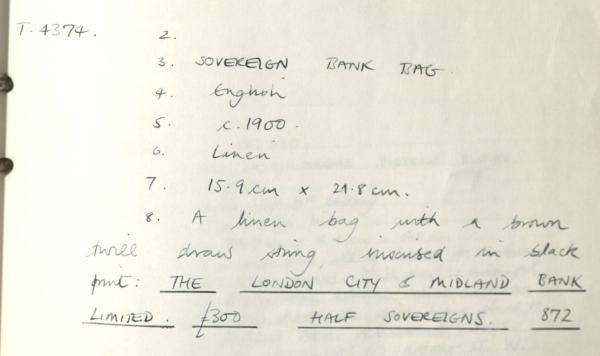 T.4374. 2.
3. SOVEREIGN BANK BAG.
4. English
5. c.1900.
6. Linen
7. 15.9cm x 21.8cm.
8. A linen bag with a brown
twill draw string, inscribed in black
print: THE LONDON CITY & MIDLAND BANK
LIMITED. £300 HALF SOVEREIGNS. 872